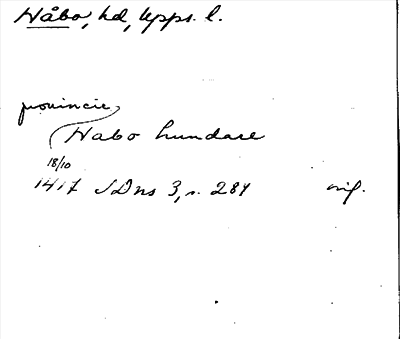 Håbo, hd, Upps. l.
provincie
Habo hundare
18/10
1417 SDns 3, s. 289 orig.